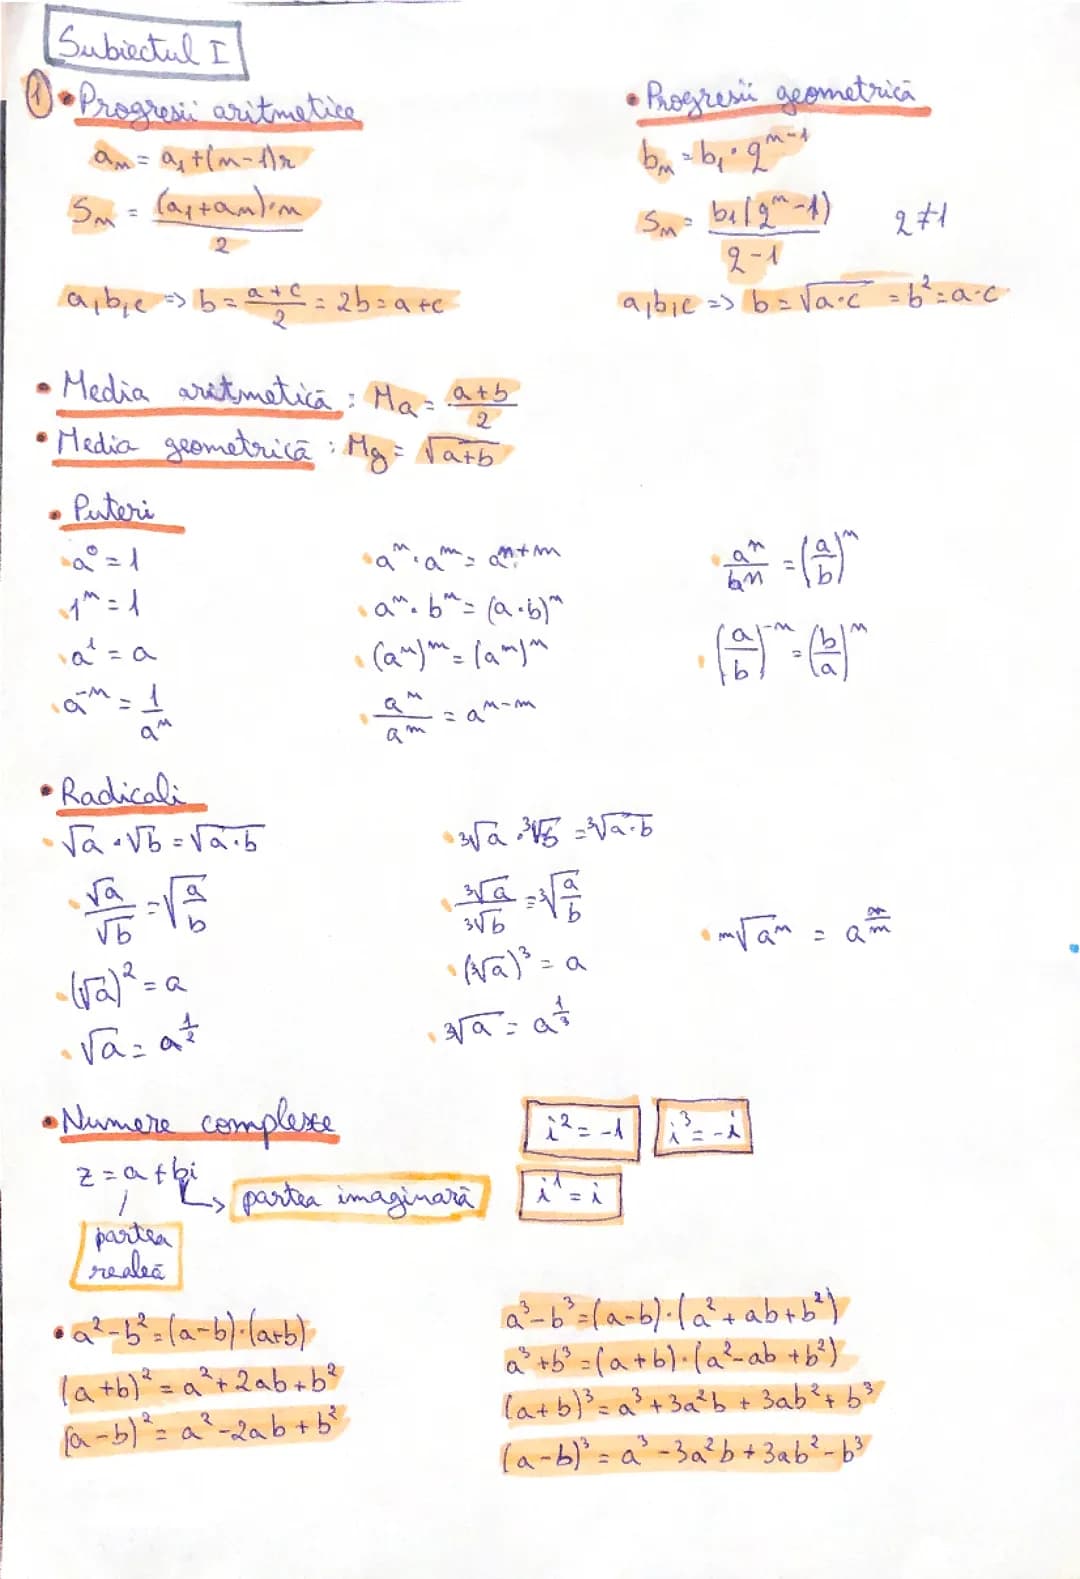 Subiectul I
① • Progresii aritmetice
aₙ = a₁ + (n-1)r
Sₙ = (a₁+aₙ)·n / 2
a,b,c => b = a+c / 2 = 2b = a+c
• Progresii geometrică
bₙ = b₁ · qⁿ⁻¹
Sₙ = b₁(qⁿ-1) / q-1   q≠1
a,b,c => b = √a·c = b² = a·c
• Media aritmetică : Ma = a+b / 2
• Media geometrică : Mg = √a+b
• Puteri
• a⁰ = 1
• 1ⁿ = 1
• a¹ = a
• a⁻ⁿ = 1 / aⁿ
• aⁿ · aᵐ = aⁿ⁺ᵐ
• aⁿ · bⁿ = (a·b)ⁿ
• (aⁿ)ᵐ = (aᵐ)ⁿ
• aⁿ / aᵐ = aⁿ⁻ᵐ
• aⁿ / bⁿ = (a/b)ⁿ
• (a/b)⁻ⁿ = (b/a)ⁿ
• Radicali
• √a · √b = √a·b
• √a / √b = √a/b
• (√a)² = a
• √a = a^1/2
• ³√a · ³√b = ³√a·b
• ³√a / ³√b = ³√a/b
• (³√a)³ = a
• ³√a = a^1/3
• ᵐ√aⁿ = a^n/m
• Numere complexe
z = a + bi
partea imaginară
partea realeă
i² = -1
i³ = -i
i¹ = i
• a²-b² = (a-b)·(a+b)
(a+b)² = a² + 2ab + b²
(a-b)² = a² - 2ab + b²
a³-b³ = (a-b)·(a² + ab + b²)
a³+b³ = (a+b)·(a² - ab + b²)
(a+b)³ = a³ + 3a²b + 3ab² + b³
(a-b)³ = a³ - 3a²b + 3ab² - b³